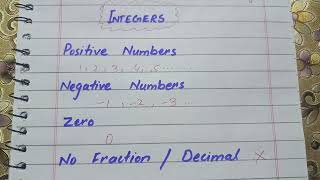 INTEGERS
Positive Numbers
1, 2, 3, 4, 5...
Negative Numbers
-1, -2, -3...
Zero
0
No Fraction / Decimal ×